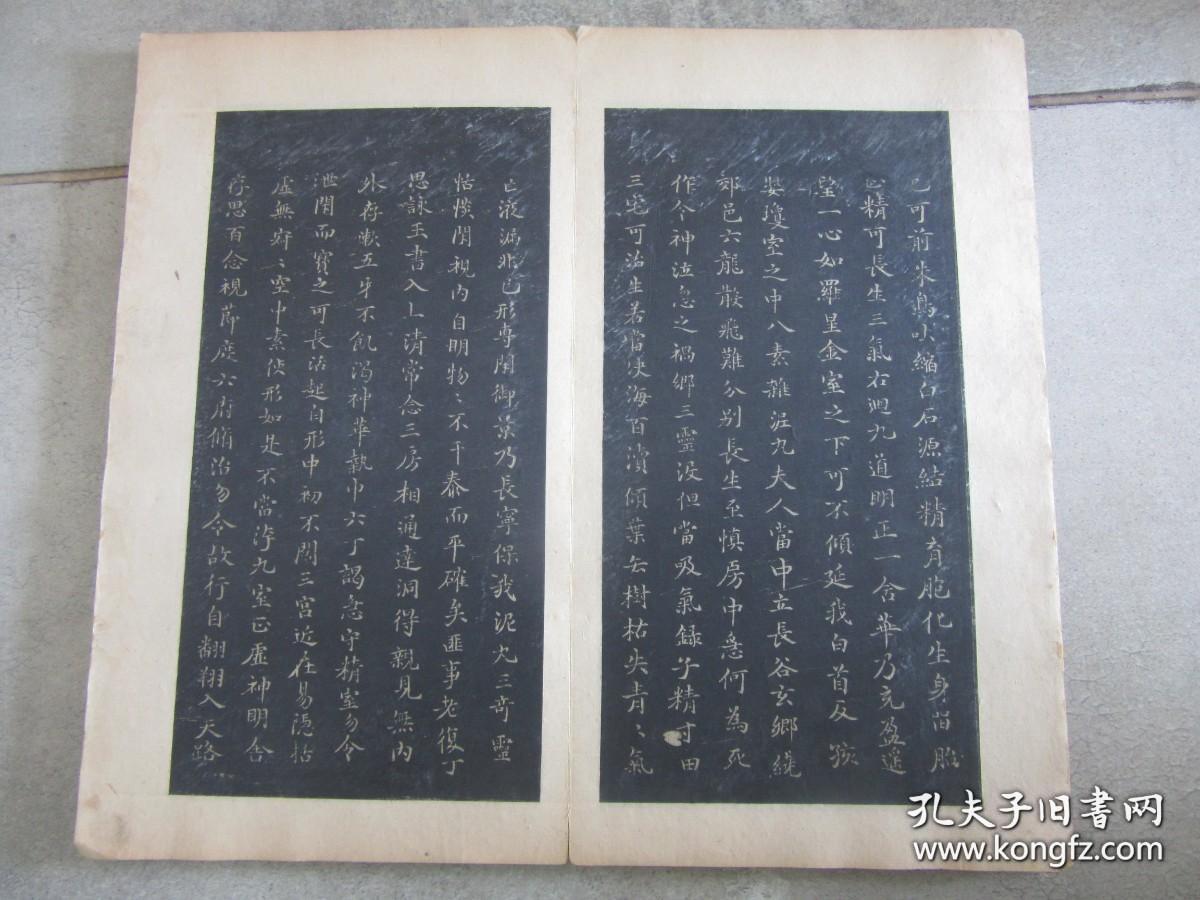 已可前朱鳥吐縮白石源結精育胞化生身留胎
止精可長生三氣右迴九道明正一含華乃充盈遙
望一心如羅星金室之下可不傾延我白首反孩
嬰瓊室之中八素雜泥九夫人當中立長谷玄鄉繞
郊邑六龍散飛難分別長生至慎房中急何為死
作令神泣忽之禍鄉三靈沒但當吸氣録子精寸田
三宅可治生若當決海百瀆傾葉去樹枯失青〻氣
亡液漏非己形專閉御景乃長寧保我泥丸三奇靈
恬惔閉視內自明物〻不干泰而平確矣匪事老復丁
思詠玉書入上清常念三房相通達洞得親見無內
外存漱五牙不飢渴神華執巾六丁謁急守精室勿令
泄閉而寶之可長活起自形中初不闊三宮近在易隱括
虛無寂〻空中素使形如是不當汙九室正虛神明舍
存思百念視節度六府脩治勿令故行自翱翔入天路
孔夫子旧书网
www.kongfz.com